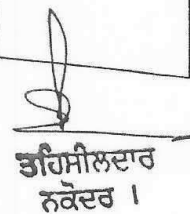 ਤਹਿਸੀਲਦਾਰ
ਨਕੋਦਰ ।